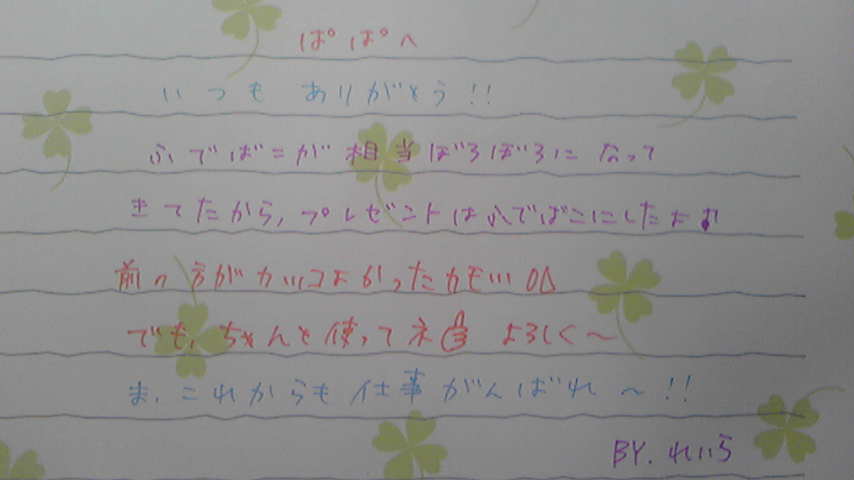 ぱぱへ
いつも ありがとう!!
ふでばこが相当ぼろぼろになって
きてたから,プレゼントはふでばこにしたよ
前の方がカッコよかったカモ…
でも,ちゃんと使ってネ よろしく～
ま,これからも仕事がんばれ～!!
BY.れいら